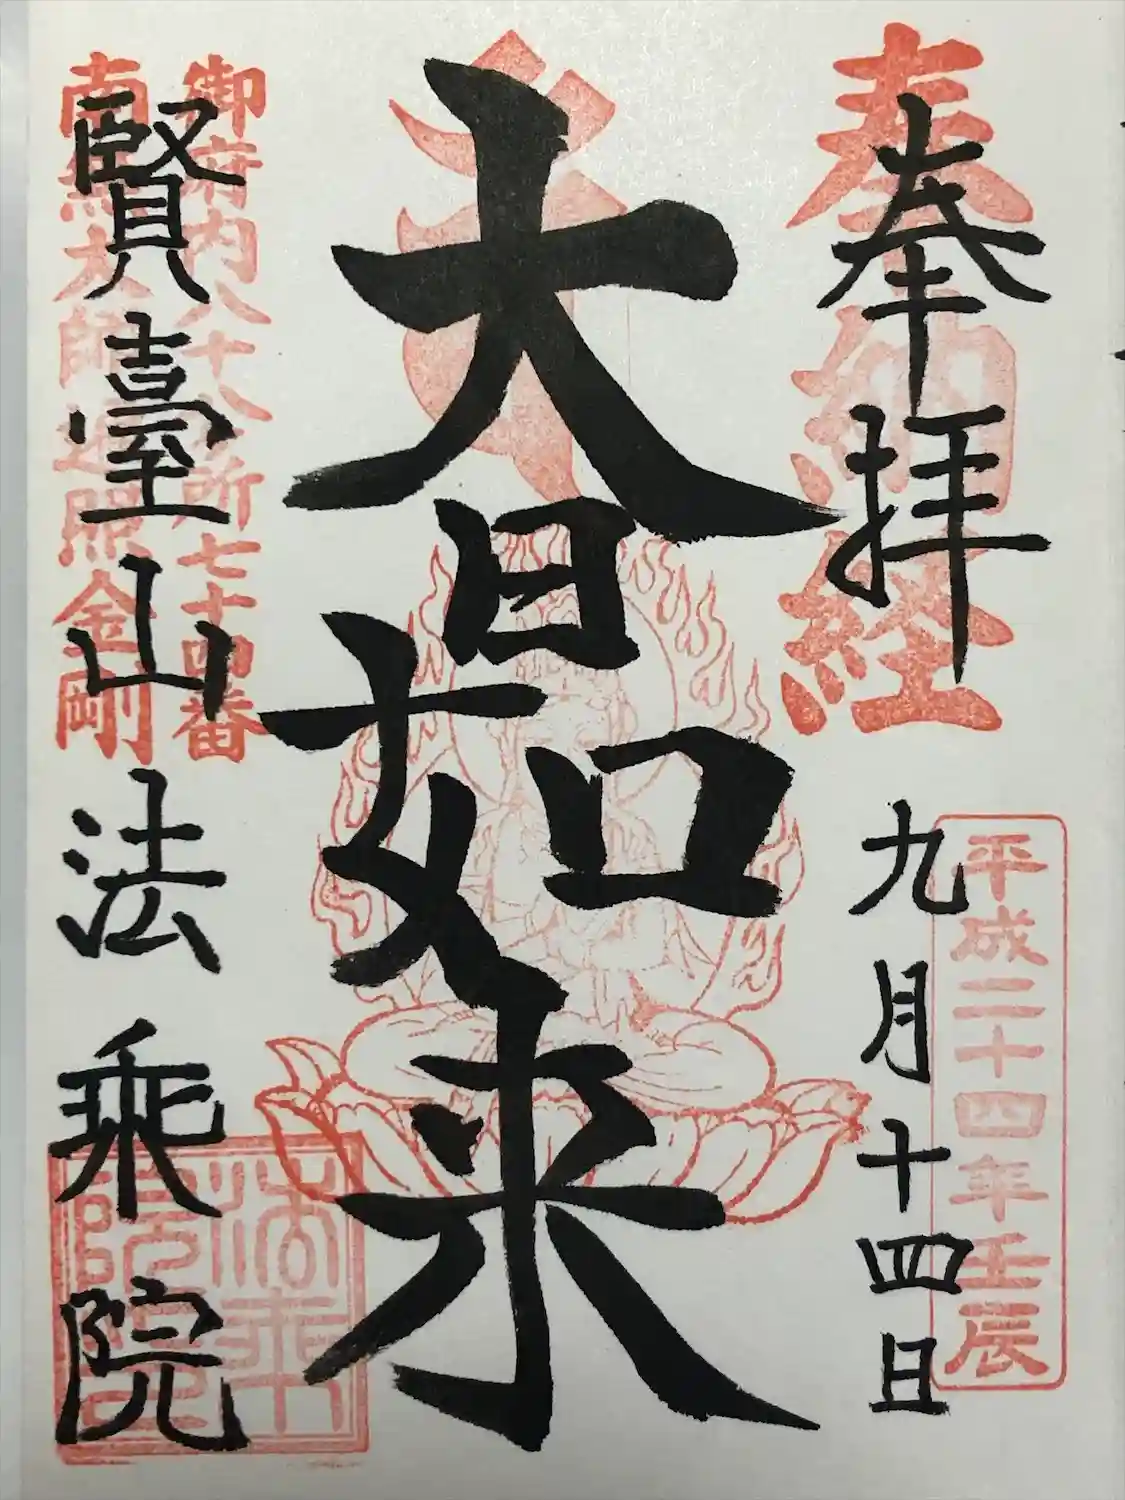 奉拝
奉納経
九月十四日
平成二十四年壬辰
大日如来
御府内八十八ヶ所七十四番
南無大師遍照金剛
賢臺山法乗院
法乗
院